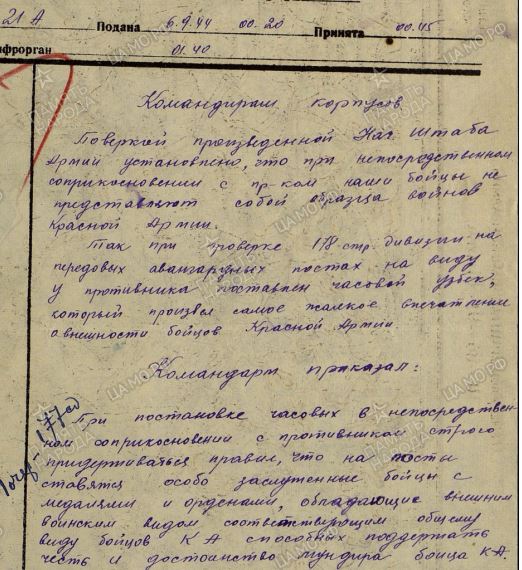 21 А Подана 6.9.44 00-20 Принята 00.45
ифрорган 01.40
Командирам корпусов
Поверкой произведенной Нач Штаба
Армии установлено, что при непосредственном
соприкосновении с пр-ком наши бойцы не
представляют собой образца воинов
Красной Армии.
Так при проверке 178 стр. дивизии на
передовых авангардных постах на виду
у противника поставлен часовой узбек,
который произвел самое жалкое впечатление
о внешности бойцов Красной Армии.
Командарм приказал:
При постановке часовых в непосредствен-
ном соприкосновении с противником строго
придерживаться правил, что на посты
ставятся особо заслуженные бойцы с
медалями и орденами, обладающие внешним
воинским видом соответствующим общему
виду бойцов К А способных поддержать
честь и достоинство мундира бойца К.А.
177 сд